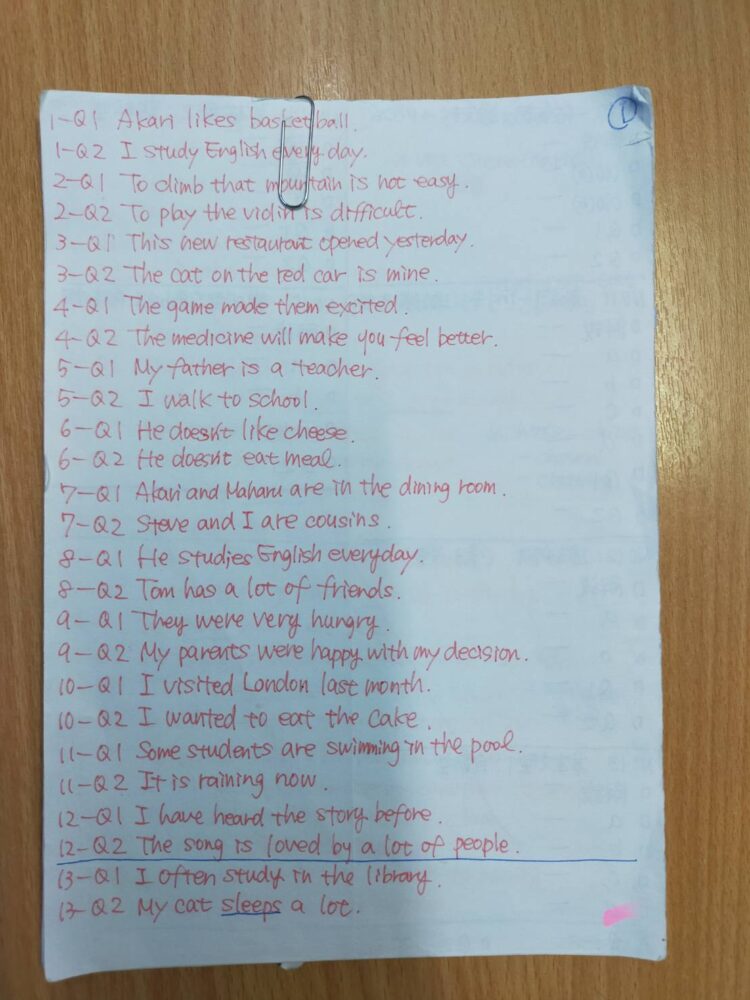 ①
1-Q1 Akari likes basketball.
1-Q2 I study English every day.
2-Q1 To climb that mountain is not easy.
2-Q2 To play the violin is difficult.
3-Q1 This new restaurant opened yesterday.
3-Q2 The cat on the red car is mine.
4-Q1 The game made them excited.
4-Q2 The medicine will make you feel better.
5-Q1 My father is a teacher.
5-Q2 I walk to school.
6-Q1 He doesn't like cheese.
6-Q2 He doesn't eat meal.
7-Q1 Akari and Maharu are in the dining room.
7-Q2 Steve and I are cousins.
8-Q1 He studies English everyday.
8-Q2 Tom has a lot of friends.
9-Q1 They were very hungry.
9-Q2 My parents were happy with my decision.
10-Q1 I visited London last month.
10-Q2 I wanted to eat the cake.
11-Q1 Some students are swimming in the pool.
11-Q2 It is raining now.
12-Q1 I have heard the story before.
12-Q2 The song is loved by a lot of people.
13-Q1 I often study in the library.
13-Q2 My cat sleeps a lot.